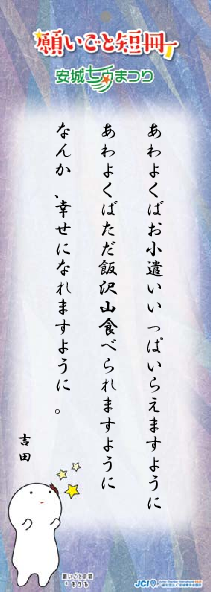 願いごと短冊
安城七夕まつり
あわよくばお小遣いいっぱいらえますように
あわよくばただ飯沢山食べられますように
なんか、幸せになれますように。
吉田
願いごと短冊
JCI